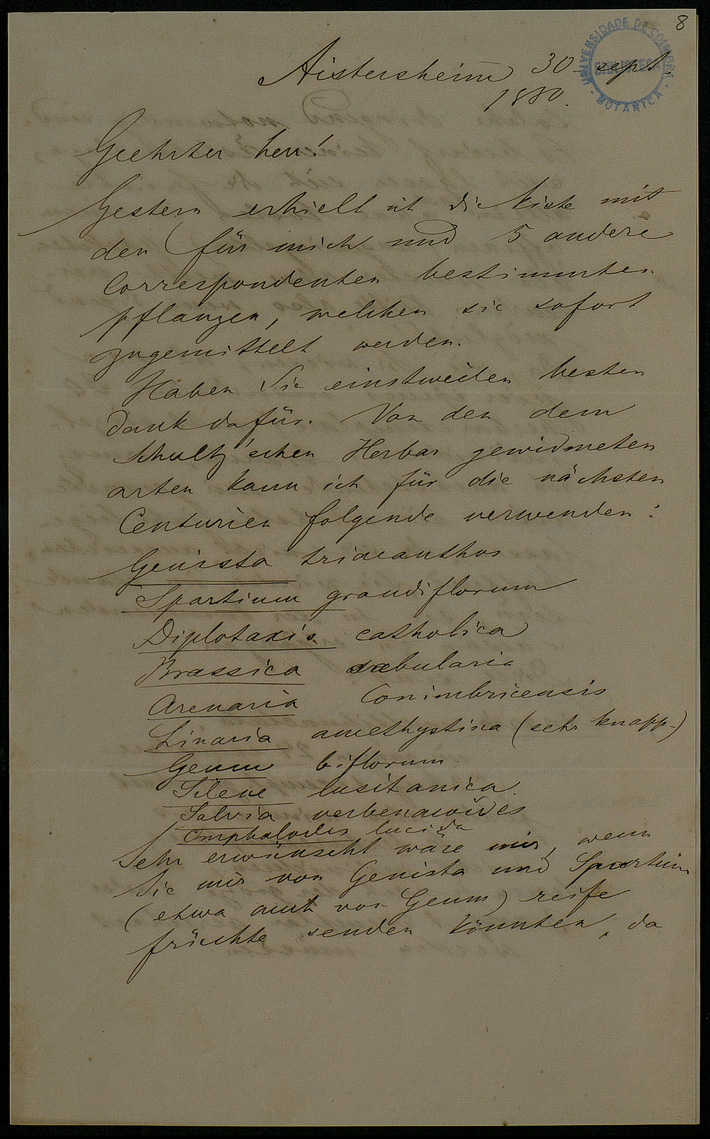 8
UNIVERSIDADE DE COIMBRA
BIBLIOTECA
BOTANICA
Aistersheim 30 sept.
1880.
Geehrter herr!
Gestern erhielt ich die kiste mit
den für mich und 5 andere
Correspondenten bestimmten
pflanzen, welchen sie sofort
zugemittelt werden.
Haben Sie einstweilen besten
dank dafür. Von den dem
Schultz'schen Herbar gewidmeten
arten kann ich für die nächsten
Centurien folgende verwenden:
Genista triacanthos
Spartium grandiflorum
Diplotaxis catholica
Brassica sabularia
Arenaria Conimbricensis
Linaria amethystina (sehr knapp.)
Geum biflorum.
Silene lusitanica.
Salvia verbenacoides
Omphalodes lucida
Sehr erwünscht wäre mir, wenn
Sie mir von Genista und Spartium
(etwa auch von Geum) reife
früchte senden könnten, da